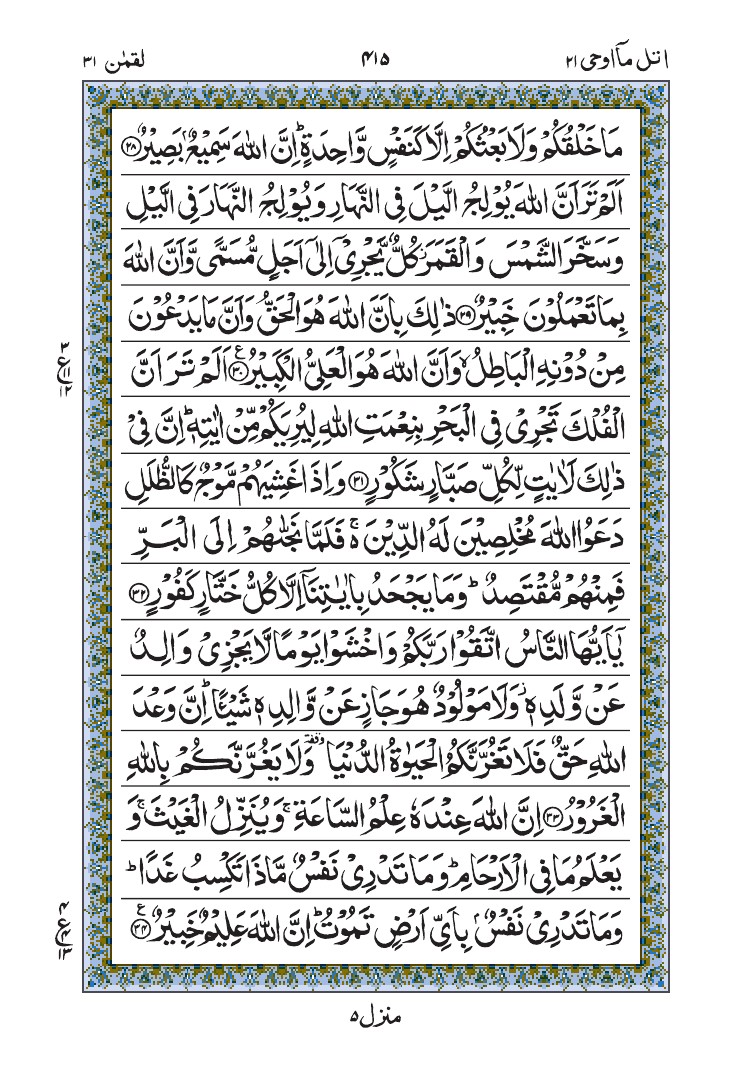 اتل مآ اوحی ۲۱
۴۱۵
لقمٰن ۳۱
مَا خَلْقُكُمْ وَلَا بَعْثُكُمْ اِلَّا كَنَفْسٍ وَّاحِدَةٍ ؕ اِنَّ اللّٰهَ سَمِیْعٌۢ بَصِیْرٌ ﴿۲۸﴾
اَلَمْ تَرَ اَنَّ اللّٰهَ یُوْلِجُ الَّیْلَ فِی النَّهَارِ وَ یُوْلِجُ النَّهَارَ فِی الَّیْلِ
وَ سَخَّرَ الشَّمْسَ وَ الْقَمَرَ ؗ كُلٌّ یَّجْرِیْۤ اِلٰۤی اَجَلٍ مُّسَمًّی وَّ اَنَّ اللّٰهَ
بِمَا تَعْمَلُوْنَ خَبِیْرٌ ﴿۲۹﴾ ذٰلِكَ بِاَنَّ اللّٰهَ هُوَ الْحَقُّ وَ اَنَّ مَا یَدْعُوْنَ
مِنْ دُوْنِهِ الْبَاطِلُ ۙ وَ اَنَّ اللّٰهَ هُوَ الْعَلِیُّ الْكَبِیْرُ ﴿۳۰﴾ ع اَلَمْ تَرَ اَنَّ
الْفُلْكَ تَجْرِیْ فِی الْبَحْرِ بِنِعْمَتِ اللّٰهِ لِیُرِیَكُمْ مِّنْ اٰیٰتِهٖ ؕ اِنَّ فِیْ
ذٰلِكَ لَاٰیٰتٍ لِّكُلِّ صَبَّارٍ شَكُوْرٍ ﴿۳۱﴾ وَ اِذَا غَشِیَهُمْ مَّوْجٌ كَالظُّلَلِ
دَعَوُا اللّٰهَ مُخْلِصِیْنَ لَهُ الدِّیْنَ ۚ۬ فَلَمَّا نَجّٰىهُمْ اِلَی الْبَرِّ
فَمِنْهُمْ مُّقْتَصِدٌ ؕ وَ مَا یَجْحَدُ بِاٰیٰتِنَاۤ اِلَّا كُلُّ خَتَّارٍ كَفُوْرٍ ﴿۳۲﴾
یٰۤاَیُّهَا النَّاسُ اتَّقُوْا رَبَّكُمْ وَ اخْشَوْا یَوْمًا لَّا یَجْزِیْ وَالِدٌ
عَنْ وَّلَدِهٖ ؗ وَ لَا مَوْلُوْدٌ هُوَ جَازٍ عَنْ وَّالِدِهٖ شَیْـًٔا ؕ اِنَّ وَعْدَ
اللّٰهِ حَقٌّ فَلَا تَغُرَّنَّكُمُ الْحَیٰوةُ الدُّنْیَا ۥ وقفة وَ لَا یَغُرَّنَّكُمْ بِاللّٰهِ
الْغَرُوْرُ ﴿۳۳﴾ اِنَّ اللّٰهَ عِنْدَهٗ عِلْمُ السَّاعَةِ ۚ وَ یُنَزِّلُ الْغَیْثَ ۚ وَ
یَعْلَمُ مَا فِی الْاَرْحَامِ ؕ وَ مَا تَدْرِیْ نَفْسٌ مَّاذَا تَكْسِبُ غَدًا ؕ
وَ مَا تَدْرِیْ نَفْسٌۢ بِاَیِّ اَرْضٍ تَمُوْتُ ؕ اِنَّ اللّٰهَ عَلِیْمٌ خَبِیْرٌ ﴿۳۴﴾ ع
۳ ع ۱۱ ۱۲
۴ ع ۴ ۱۳
منزل ۵